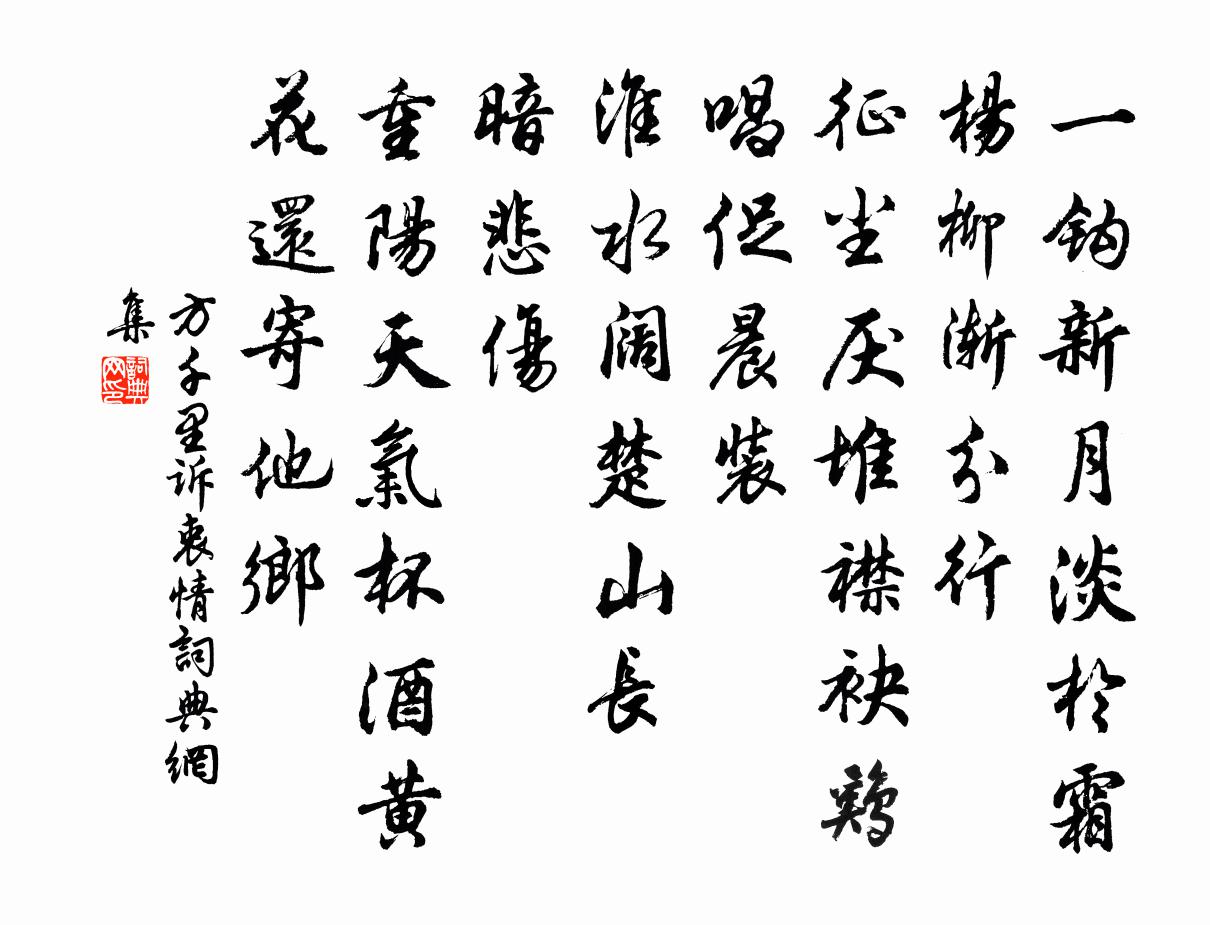 一鈎新月淡於霜
楊柳漸分行
征尘厌堆襟袂鷄
唱促晨裝
淮水阔楚山長
暗悲傷
重陽天氣杯酒黄
花還寄他鄉
方千里诉衷情詞典網
集
詞典网印